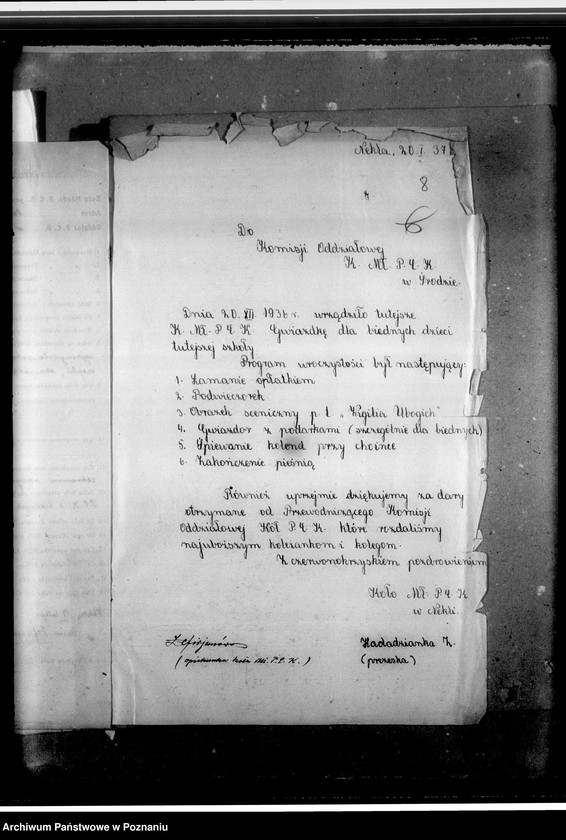 Nekla, 20.I.37
8
6
Do
Komisji Oddziałowej
K. Mł. P. Cz. K.
w Środzie.
Dnia 20. XII. 1936 r. urządziło tutejsze
K. Mł. P. Cz. K. Gwiazdkę dla biednych dzieci
tutejszej szkoły
Program uroczystości był następujący:
1. Łamanie opłatkiem
2. Podwieczorek
3. Obrazek sceniczny p. t. „Wigilia Ubogich"
4. Gwiazdor z podarkami (szczególnie dla biednych)
5. Śpiewanie kolend przy choince
6. Zakończenie pieśnią
Również uprzejmie dziękujemy za dary
otrzymane od Przewodniczącego Komisji
Oddziałowej Kół P. Cz. K. które rozdaliśmy
najuboższym koleżankom i kolegom.
Z czerwonokrzyskiem pozdrowieniem
Koło Mł. P. Cz. K.
w Nekli.
(opiekunka koła Mł. P. C. K.)
(prezeska)
Archiwum Państwowe w Poznaniu